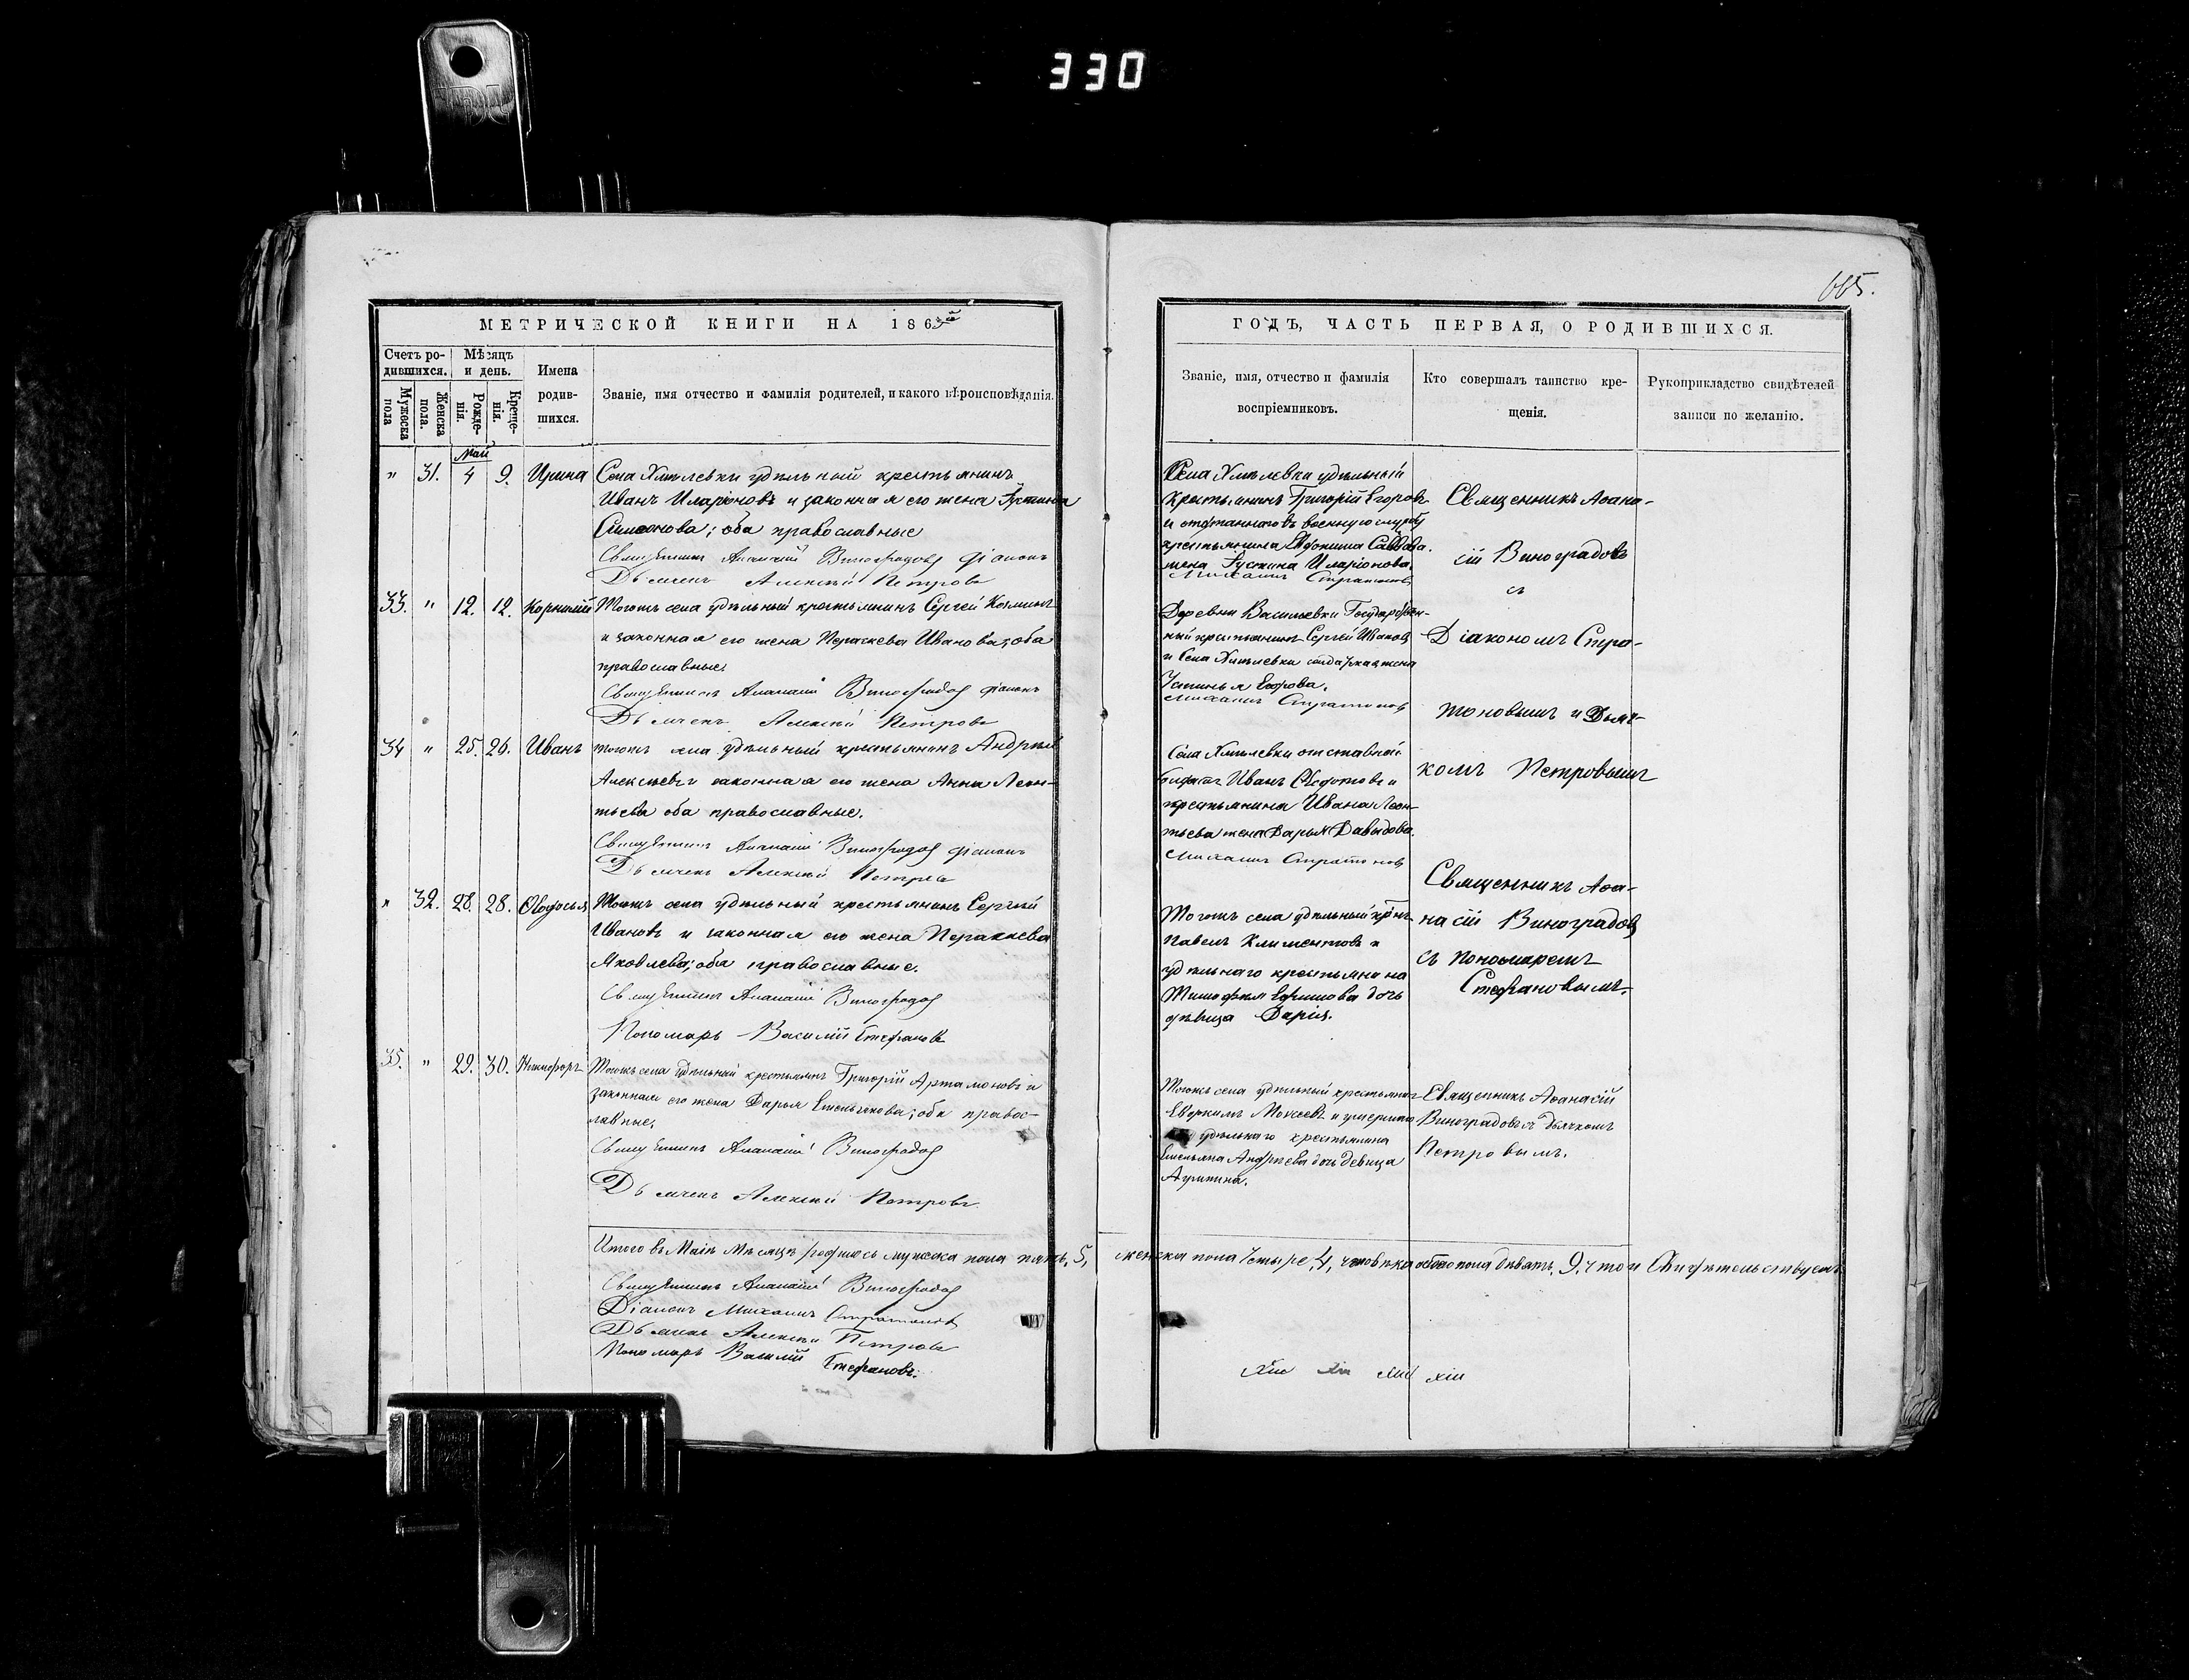 330
665.
МЕТРИЧЕСКОЙ КНИГИ НА 1863й
Счетъ ро-
дившихся.
Мѣсяцъ
и день.
Мужеска
пола
Женска
пола.
Рожде-
нія.
Креще-
нія.
Имена
родив-
шихся.
Званіе, имя отчество и фамилія родителей, и какого вѣроисповѣданія.
Май
" 31. 4 9. Ирина Села Хмѣлевки удѣльный крестьянинъ
Иванъ Иларіоновъ и законная его жена Густина
Симеонова; оба православные
Священникъ Аѳанасій Виноградовъ Діаконъ
Дьячекъ Алексѣй Петровъ
33. " 12. 12. Корнилій Тогожъ села удѣльный крестьянинъ Сергѣй Козминъ
и законная его жена Параскева Иванова; оба
православные.
Священникъ Аѳанасій Виноградовъ Діаконъ
Дьячекъ Алексѣй Петровъ
34 " 25. 26. Иванъ Тогожъ села удѣльный крестьянинъ Андрей
Алексѣевъ и законная его жена Анна Леон-
тьева оба православные.
Священникъ Аѳанасій Виноградовъ Діаконъ
Дьячекъ Алексѣй Петровъ
" 32. 28. 28. Ѳеодосья Тогожъ села удѣльный крестьянинъ Сергѣй
Ивановъ и законная его жена Параскева
Яковлева; оба православные.
Священникъ Аѳанасій Виноградовъ
Пономарь Василій Стефановъ
35. " 29. 30. Никифоръ Тогожъ села удѣльный крестьянинъ Григорій Артамоновъ и
законная его жена Дарья Емельянова; оба правос-
лавные.
Священникъ Аѳанасій Виноградовъ
Дьячекъ Алексѣй Петровъ
Итого въ Маіѣ мѣсяцѣ родилось мужеска пола пять, 5, женска пола четыре, 4, человѣка обоего пола девять, 9, что и свидѣтельствуемъ
Священникъ Аѳанасій Виноградовъ
Діаконъ Михаилъ Стратоновъ
Дьячекъ Алексѣй Петровъ
Пономарь Василій Стефановъ.
ГОДЪ, ЧАСТЬ ПЕРВАЯ, О РОДИВШИХСЯ.
Званіе, имя, отчество и фамилія
воспріемниковъ.
Кто совершалъ таинство кре-
щенія.
Рукоприкладство свидѣтелей
записи по желанію.
Села Хмѣлевки удѣльный
крестьянинъ Григорій Егоровъ
и отданнаго въ военную службу
крестьянина Евдокима Саввова
жена Густина Иларіонова.
Михаилъ Стратоновъ
Священникъ Аѳана-
сій Виноградовъ
съ
Деревни Васильевки Государствен-
ный крестьянинъ Сергѣй Ивановъ
и Села Хмѣлевки солдатская жена
Устинья Егорова.
Михаилъ Стратоновъ
Діакономъ Стра-
тоновымъ и Дьяч-
комъ Петровымъ
Села Хмѣлевки отставной
солдатъ Иванъ Ѳедотовъ и
крестьянина Ивана Леон-
тьева жена Дарья Давыдова.
Михаилъ Стратоновъ
Тогожъ села удѣльный кр-нъ
Павелъ Климентовъ и
удѣльнаго крестьянина
Тимофея Ефимова дочь
дѣвица Дарія.
Священникъ Аѳа-
насій Виноградовъ
съ Пономаремъ
Стефановымъ.
Тогожъ села удѣльный крестьянинъ
Евдокимъ Моисеевъ и умершаго
удѣльнаго крестьянина
Емельяна Андреева дочь девица
Священникъ Аѳанасій
Виноградовъ съ Дьячкомъ
Петровымъ.